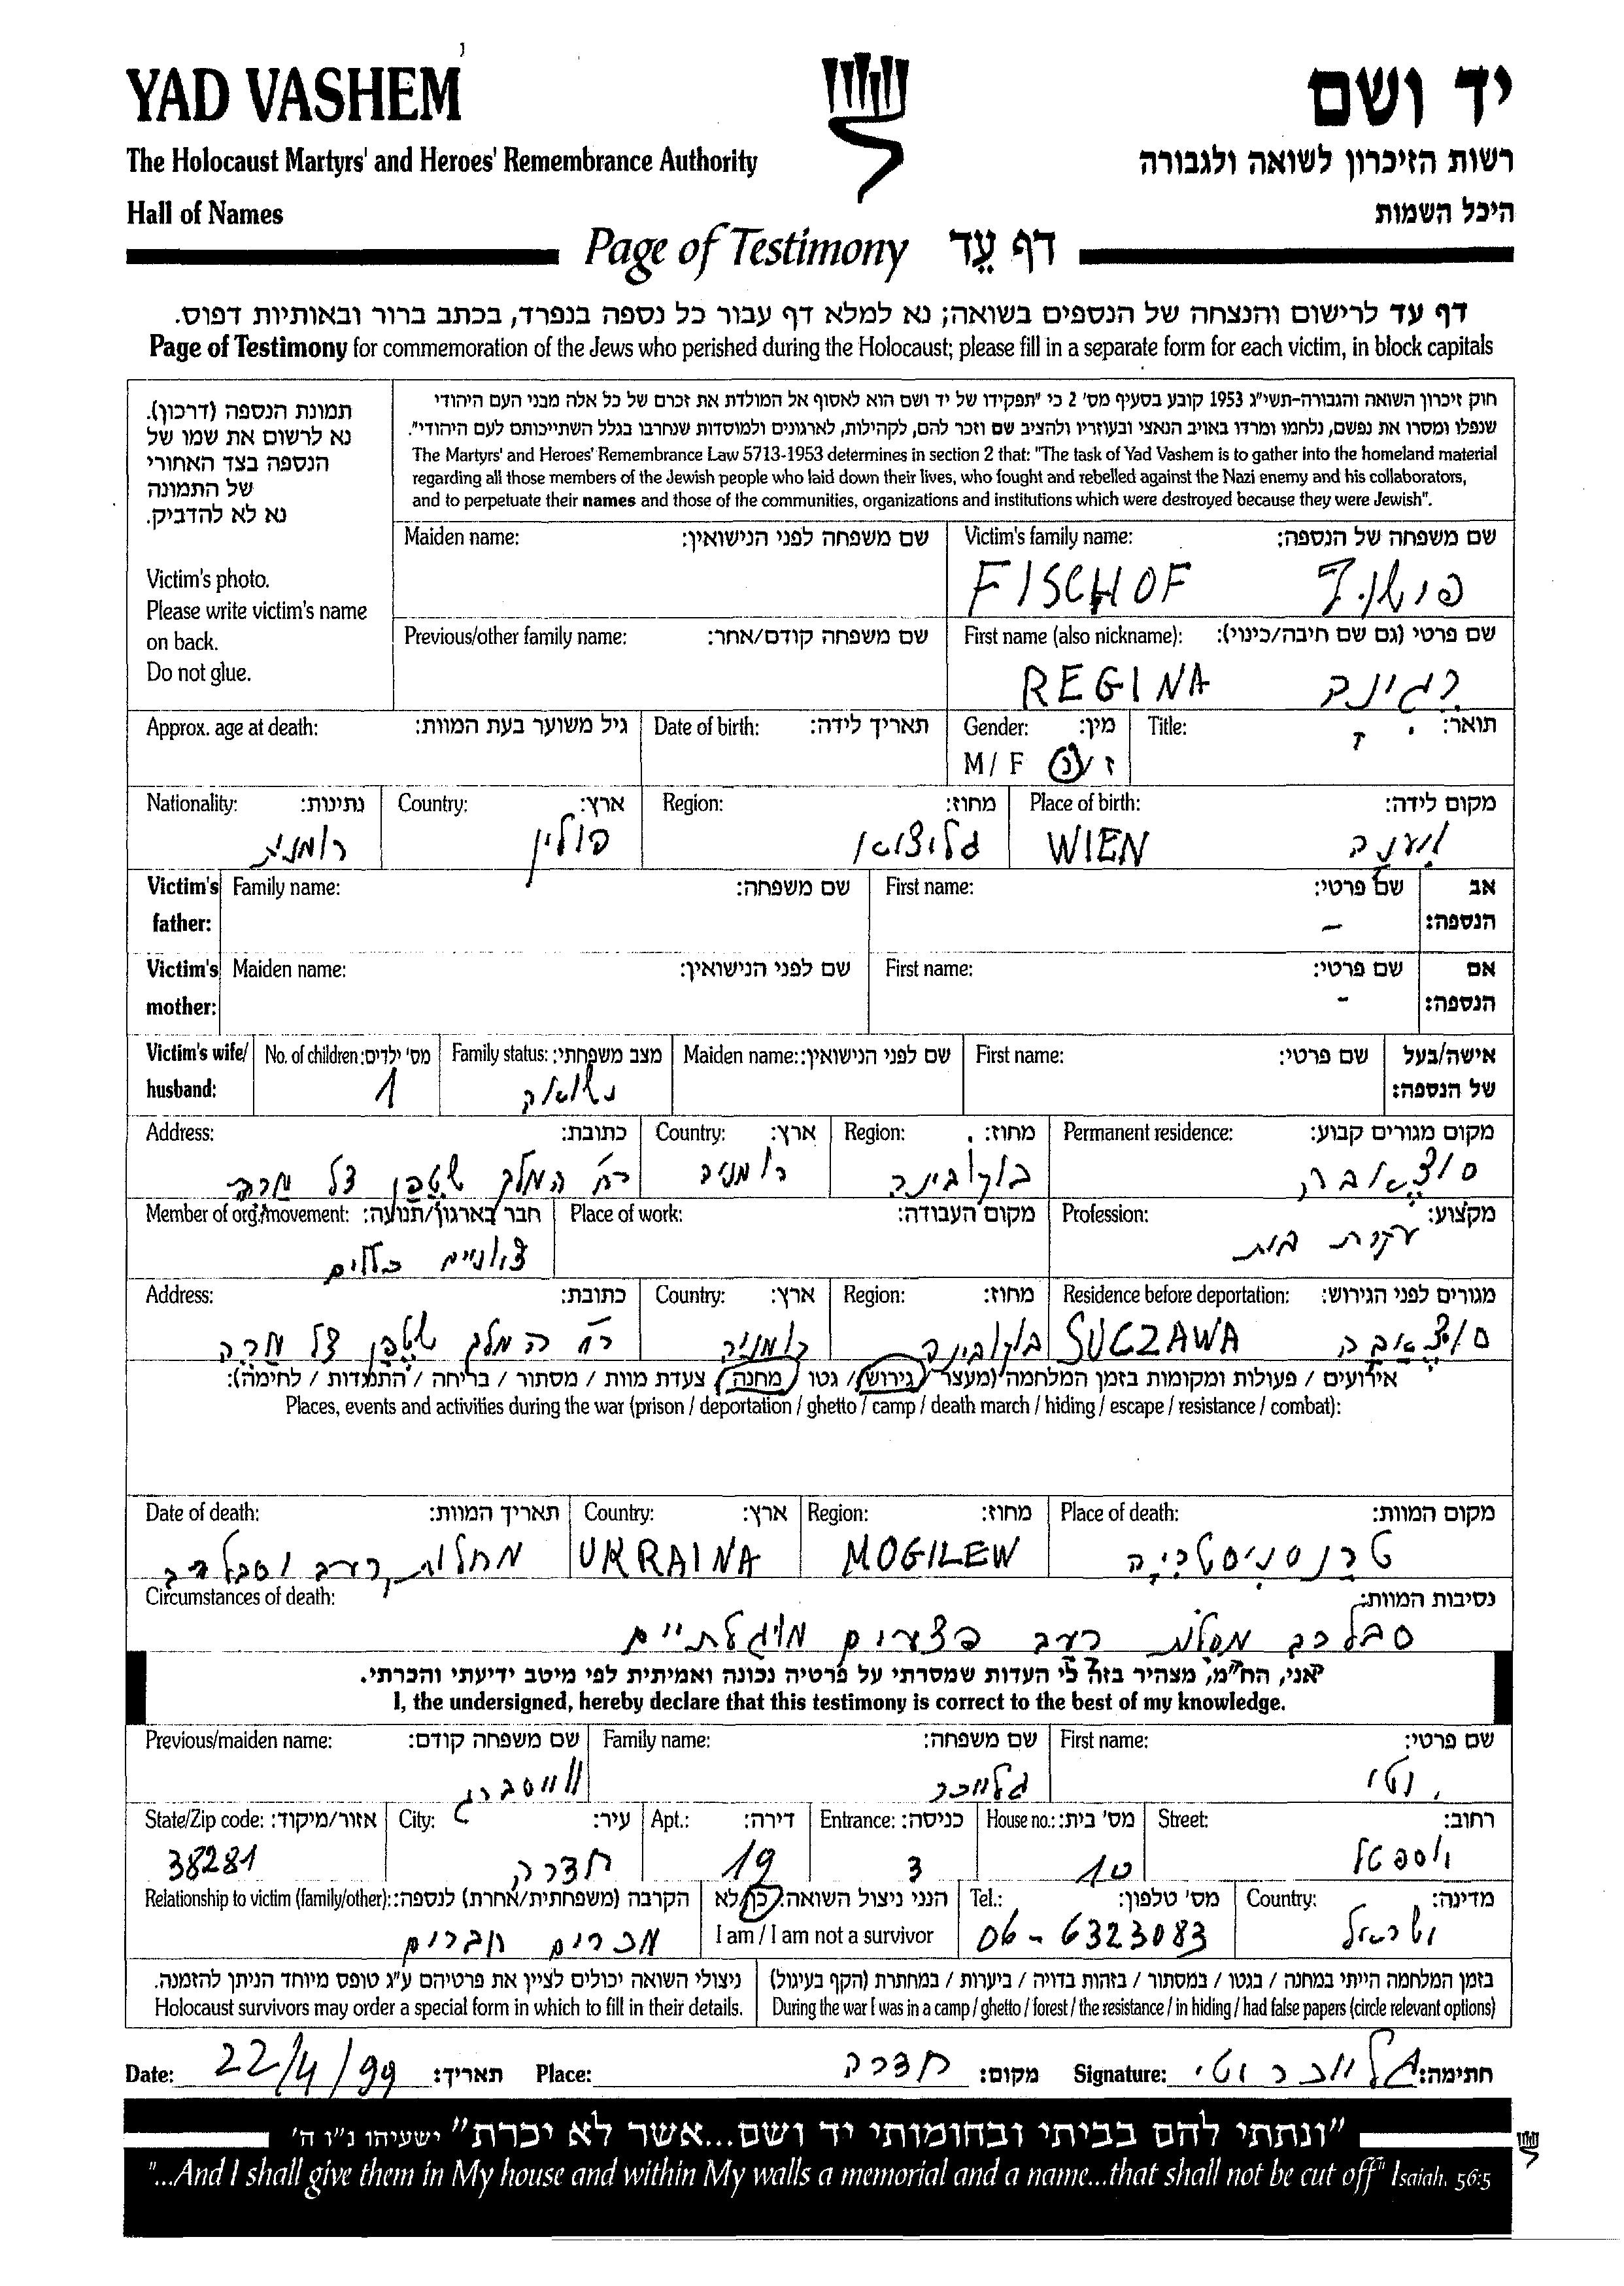 YAD VASHEM
The Holocaust Martyrs' and Heroes' Remembrance Authority
Hall of Names
יד ושם
רשות הזיכרון לשואה ולגבורה
היכל השמות
Page of Testimony דף עֵד
דף עד לרישום והנצחה של הנספים בשואה; נא למלא דף עבור כל נספה בנפרד, בכתב ברור ובאותיות דפוס.
Page of Testimony for commemoration of the Jews who perished during the Holocaust; please fill in a separate form for each victim, in block capitals
תמונת הנספה (דרכון).
נא לרשום את שמו של
הנספה בצד האחורי
של התמונה
נא לא להדביק.
Victim's photo.
Please write victim's name
on back.
Do not glue.
חוק זיכרון השואה והגבורה-תשי"ג 1953 קובע בסעיף מס' 2 כי "תפקידו של יד ושם הוא לאסוף אל המולדת את זכרם של כל אלה מבני העם היהודי
שנפלו ומסרו את נפשם, נלחמו ומרדו באויב הנאצי ובעוזריו ולהציב שם וזכר להם, לקהילות, לארגונים ולמוסדות שנחרבו בגלל השתייכותם לעם היהודי".
The Martyrs' and Heroes' Remembrance Law 5713-1953 determines in section 2 that: "The task of Yad Vashem is to gather into the homeland material
regarding all those members of the Jewish people who laid down their lives, who fought and rebelled against the Nazi enemy and his collaborators,
and to perpetuate their names and those of the communities, organizations and institutions which were destroyed because they were Jewish".
Maiden name: שם משפחה לפני הנישואין: Victim's family name: שם משפחה של הנספה:
FISCHOF פישוף
Previous/other family name: שם משפחה קודם/אחר: First name (also nickname): שם פרטי (גם שם חיבה/כינוי):
REGINA רגינה
Approx. age at death: גיל משוער בעת המוות: Date of birth: תאריך לידה: Gender: מין: Title: תואר:
M / F ז/נ
Nationality: נתינות: Country: ארץ: Region: מחוז: Place of birth: מקום לידה:
רומנית פולין WIEN
Victim's Family name: שם משפחה: First name: שם פרטי: אב
father: הנספה:
Victim's Maiden name: שם לפני הנישואין: First name: שם פרטי: אם
mother: הנספה:
Victim's wife/ No. of children: מס' ילדים: Family status: מצב משפחתי: Maiden name: שם לפני הנישואין: First name: שם פרטי: אישה/בעל
husband: 1 נשואה של הנספה:
Address: כתובת: Country: ארץ: Region: מחוז: Permanent residence: מקום מגורים קבוע:
רח המלך שטפן צל מרה רומניה בוקובינה סוצ'אבה
Member of org./movement: חבר בארגון/תנועה: Place of work: מקום העבודה: Profession: מקצוע:
ציוניים כללים עקרת בית
Address: כתובת: Country: ארץ: Region: מחוז: Residence before deportation: מגורים לפני הגירוש:
רח המלך שטפן צל מרה רומניה בוקובינה SUCZAWA סוצ'אבה
אירועים / פעולות ומקומות בזמן המלחמה (מעצר / גירוש / גטו / מחנה / צעדת מוות / מסתור / בריחה / התנגדות / לחימה):
Places, events and activities during the war (prison / deportation / ghetto / camp / death march / hiding / escape / resistance / combat):
Date of death: תאריך המוות: Country: ארץ: Region: מחוז: Place of death: מקום המוות:
מחלות רעב וסבל רב UKRAINA MOGILEW טרנסניסטריה
Circumstances of death: נסיבות המוות:
סבל רב מחלות רעב
אני, הח"מ, מצהיר בזה כי העדות שמסרתי על פרטיה נכונה ואמיתית לפי מיטב ידיעתי והכרתי.
I, the undersigned, hereby declare that this testimony is correct to the best of my knowledge.
Previous/maiden name: שם משפחה קודם: Family name: שם משפחה: First name: שם פרטי:
וייסברג
State/Zip code: אזור/מיקוד: City: עיר: Apt.: דירה: Entrance: כניסה: House no.: מס' בית: Street: רחוב:
38281 חדרה 19 3 10
Relationship to victim (family/other): הקרבה (משפחתית/אחרת) לנספה: הנני ניצול השואה: כן/לא Tel.: מס' טלפון: Country: מדינה:
מכרים חברים I am / I am not a survivor 06-6323083 ישראל
ניצולי השואה יכולים לציין את פרטיהם ע"ג טופס מיוחד הניתן להזמנה.
Holocaust survivors may order a special form in which to fill in their details.
בזמן המלחמה הייתי במחנה / בגטו / במסתור / בזהות בדויה / ביערות / במחתרת (הקף בעיגול)
During the war I was in a camp / ghetto / forest / the resistance / in hiding / had false papers (circle relevant options)
Date: 22/4/99 תאריך: Place: חדרה מקום: Signature: חתימה:
"ונתתי להם בביתי ובחומותי יד ושם...אשר לא יכרת" ישעיהו נ"ו ה'
"...And I shall give them in My house and within My walls a memorial and a name...that shall not be cut off" Isaiah, 56:5